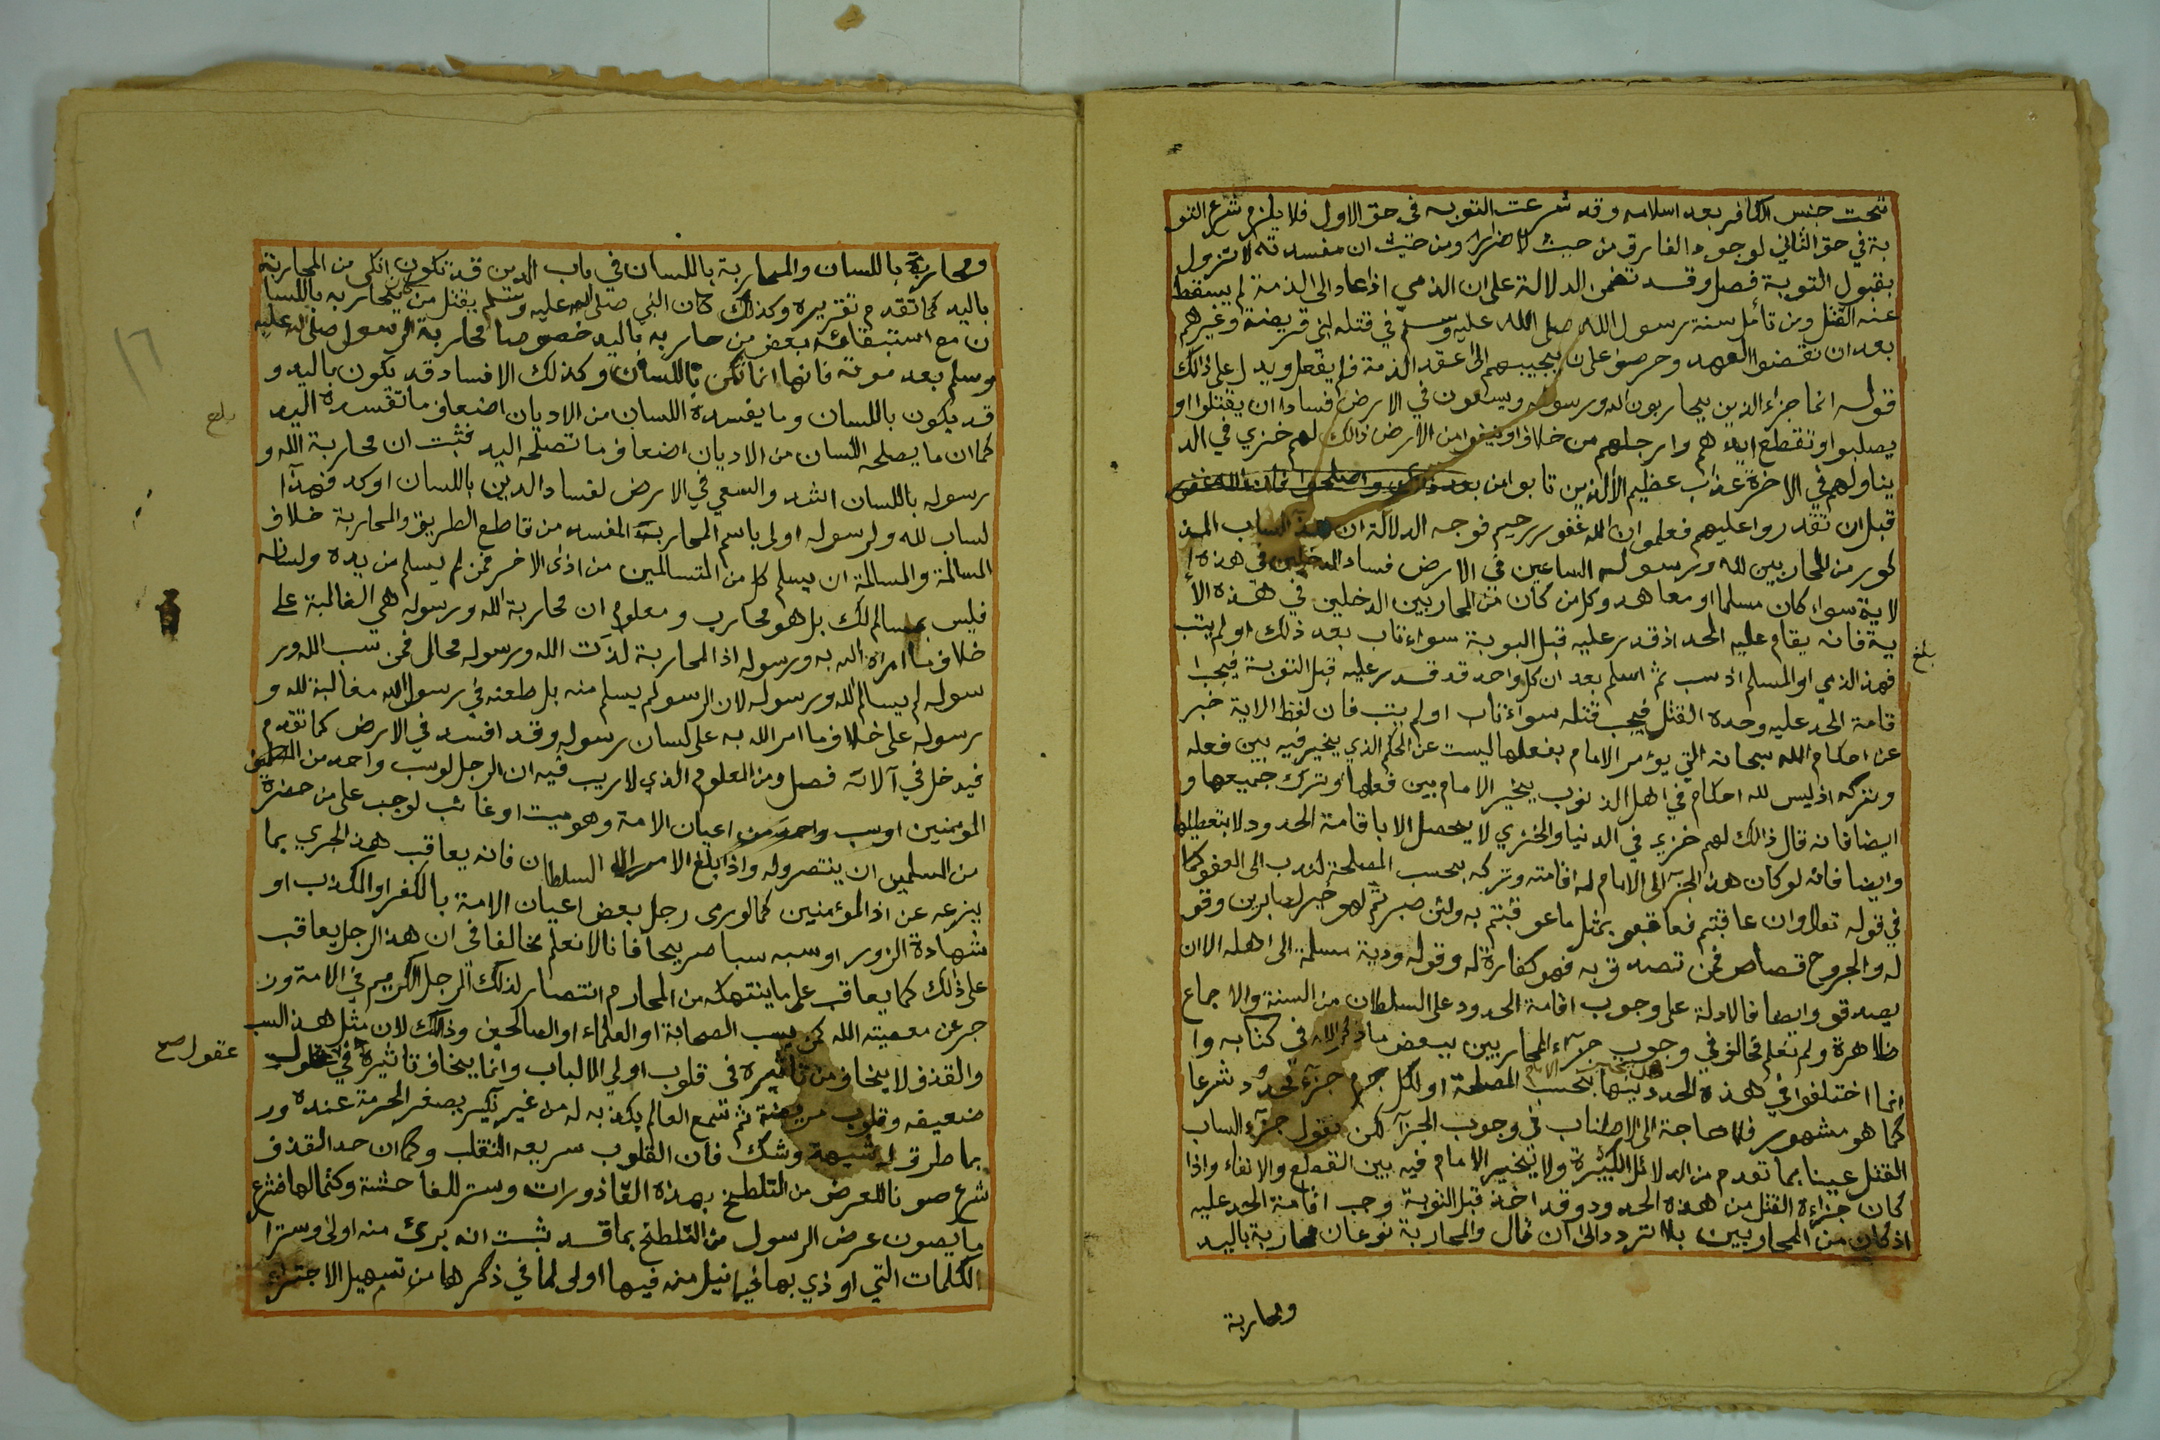 تحت جنس الكافر بعد اسلامه وقد شرعت التوبه في حق الاول فلا يلزم شرع التو
بة في حق الثاني لوجود الفارق من حيث لاضرار ومن حيث ان مفسدته لا تزول
بقبول التوبة فصل وقد تضمن الدلالة على ان الذمي اذا عاد الى الذمة لم يسقط
عنه القتل ومن تأمل سنة رسول الله صلى الله عليه وسلم في قتله لبني قريضة وغيرهم
بعد ان نقضوا العهد وحرصوا على ان يجيبهم الى عقد الذمة فلم يفعل ويدل على ذلك
قوله انما جزاء الذين يحاربون الله ورسوله ويسعون في الارض فسادا ان يقتلوا او
يصلبوا او تقطع ايديهم وارجلهم من خلاف او ينفوا من الارض ذالك لهم خزي في الد
نيا ولهم في الاخرة عذاب عظيم الا الذين تابوا من بعد ذلك واصلحوا فان الله غفور
قبل ان تقدروا عليهم فعلموا ان الله غفور رحيم فوجه الدلالة ان هذا الساب المذ
كور من المحاربين لله ورسوله الساعين في الارض فسادا الدخلين في هذه ا
لاية سواء كان مسلما او معاهد وكل من كان من المحاربين الدخلين في هذه الأ
ية فانه يقام عليه الحد اذ قدر عليه قبل التوبة سواء تاب بعد ذلك او لم يتب
فهذ الذمي او المسلم اذ سب ثم اسلم بعد ان كل واحد قد قدر عليه قبل التوبة فيجب ا
قامة الحد عليه وحده القتل فيجب قتله سواء تاب او لم يتب فان لفظ الاية خبر
عن احكام الله سبحانه التي يؤمر الامام بفعلها ليست عن الحكم الذي يخير فيه بين فعله
وتركه اذ ليس لله احكام في اهل الذنوب يخير الامام بين فعلها وترك جميعها و
ايضا فانه قال ذالك لهم خزي في الدنيا والخزي لا يحصل الا باقامة الحدود لا بتعطيلها
وايضا فانه لو كان هذ الجزآ الى الامام له اقامته وتركه بحسب المصلحة لندب الى العفو كما
في قوله تعالى وان عاقبتم فعاقبو بمثل ما عوقبتم به ولئن صبرتم لهو خير للصابرين وقو
له والجروح قصاص فمن تصدق به فهو كفارة له وقوله ودية مسلمة الى اهله الا ان
يصدقو وايضا فالادلة على وجوب اقامة الحدود على السلطان من السنة والاجماع
ظاهرة ولم نعلم مخالف في وجوب جزآء المحاربين ببعض ماذكر الله في كتابه وا
نما اختلفوا في هذه الحدود يخير الامام بينها بحسب المصلحة او لكل جرم جزآء محدود شرعا
كما هو مشهور فلا حاجة الى الاطناب في وجوب الجزآ لكن نقول جزآء الساب
القتل عينا بما تقدم من الدلائل الكثيرة ولا تخيير الامام فيه بين القطع والانفاء واذا
كان جزاءه القتل من هذه الحدود وقد اخذ قبل التوبة وجب اقامة الحد عليه
اذ كان من المحاربين بلا تردد الى ان قال والمحاربة نوعان محاربة باليد
ومحاربة
بلغ
ومحاربة باللسان والمحاربة باللسان في باب الدين قد تكون انكى من المحاربة
باليد كما تقدم تقريره وكذلك كان النبي صلى الله عليه وسلم يقتل من كان يحاربه باللسا
ن مع استبقائه بعض من حاربه باليد خصوصا محاربة الرسول صلى الله عليه
وسلم بعد موته فانها انما تكن باللسان وكذلك الافساد قد يكون باليد و
قد يكون باللسان وما يفسده اللسان من الاديان اضعاف ما تفسده اليد
كما ان ما يصلحه اللسان من الاديان اضعاف ما تصلحه اليد فثبت ان محاربة الله و
رسوله باللسان اشد والسعي في الارض لفساد الدين باللسان اوكد فهذا
لساب لله ولرسوله اولى باسم المحارب المفسد من قاطع الطريق والمحاربة خلاف
المسالمة والمسالمة ان يسلم كل من المتسالمين من اذى الاخر فمن لم يسلم من يده ولسانه
فليس بمسالم لك بل هو محارب ومعلوم ان محاربة الله ورسوله هي الغالبة على
خلاف ما امر الله به ورسوله اذ المحاربة لذت الله ورسوله محال فمن سب الله ور
سوله لم يسالم الله ورسوله لان الرسول لم يسلم منه بل طعنه في رسول الله مغالبة لله و
رسوله على خلاف ما امر الله به على لسان رسوله وقد افسد في الارض كما تقدم
فيدخل في آلاية فصل ومن المعلوم الذي لا ريب فيه ان الرجل لو سب واحد من
المؤمنين او سب واحد من اعيان الامة وهو ميت او غائب لوجب على من حضره
من المسلمين ان ينتصر وله واذا بلغ الامر الى السلطان فانه يعاقب هذ الجري بما
ينزعه عن اذ المؤمنين كما لو رمى رجل بعض اعيان الامة بالكفر او الكذب او
شهادة الزور او سبه سبا صريحا فانا لا نعلم مخالفا في ان هذ الرجل يعاقب
على ذلك كما يعاقب على ما ينتهكه من المحارم انتصار لذلك الرجل الكريم في الامة ون
جر عن معصيته الله كمن يسب الصحابة او العلماء او الصالحين وذالك لان مثل هذ السب
والقذف لا يخاف من تاثيره في قلوب اولي الالباب وانما يخاف تاثيره في
ضعيفه وقلوب مريضة ثم تسمع العالم يكذبه له من غير نكير يصغر الحرمة عنده ور
بما طرق له شبهة وشك فان القلوب سريعه التقلب وكما ان حد القذف
شرع صونا للعرض من التلطخ بهذه القاذورات وستر للفاحشة وكتما لها فشرع
ما يصون عرض الرسول من التلطخ بما قد ثبت انه برئ منه اولى وسترا
الكلمات التي اوذي بها نيل منه فيها اولى لما في ذكرها من تسهيل الاجتراء
بلغ
عقول صح
١٦